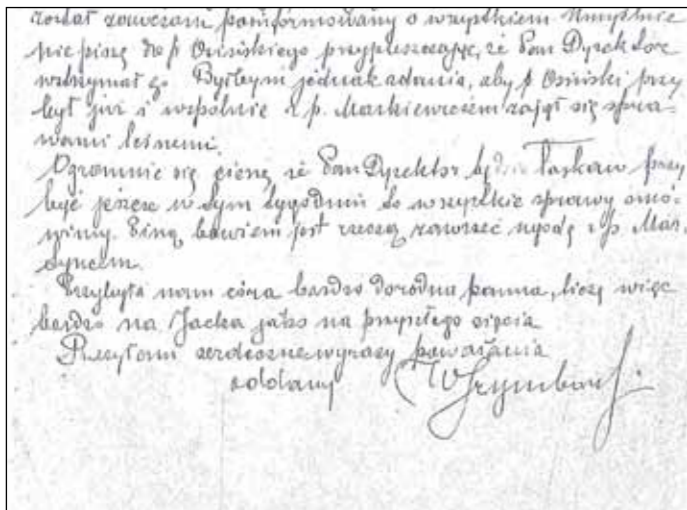 został zawczasu poinformowany o wszystkiem. Umyślnie
nie piszę do p. Osińskiego przypuszczając, że Pan Dyrektor
wstrzymał go. Byłbym jednak zdania, aby p. Osiński przy
był już i wspólnie z p. Markiewiczem zajął się spra-
wami leśnemi.
Ogromnie się cieszę że Pan Dyrektor będzie łaskaw przy
być jeszcze w tym tygodniu to wszystkie sprawy omó-
wimy. Inną bowiem jest rzeczą zawrzeć ugodę z p. Mar.
tyncem.
Przybyła nam córa bardzo dorodna panna, liczę więc
bardzo na Jacka jako na przyszłego zięcia
Przesyłam serdeczne wyrazy poważania
oddany